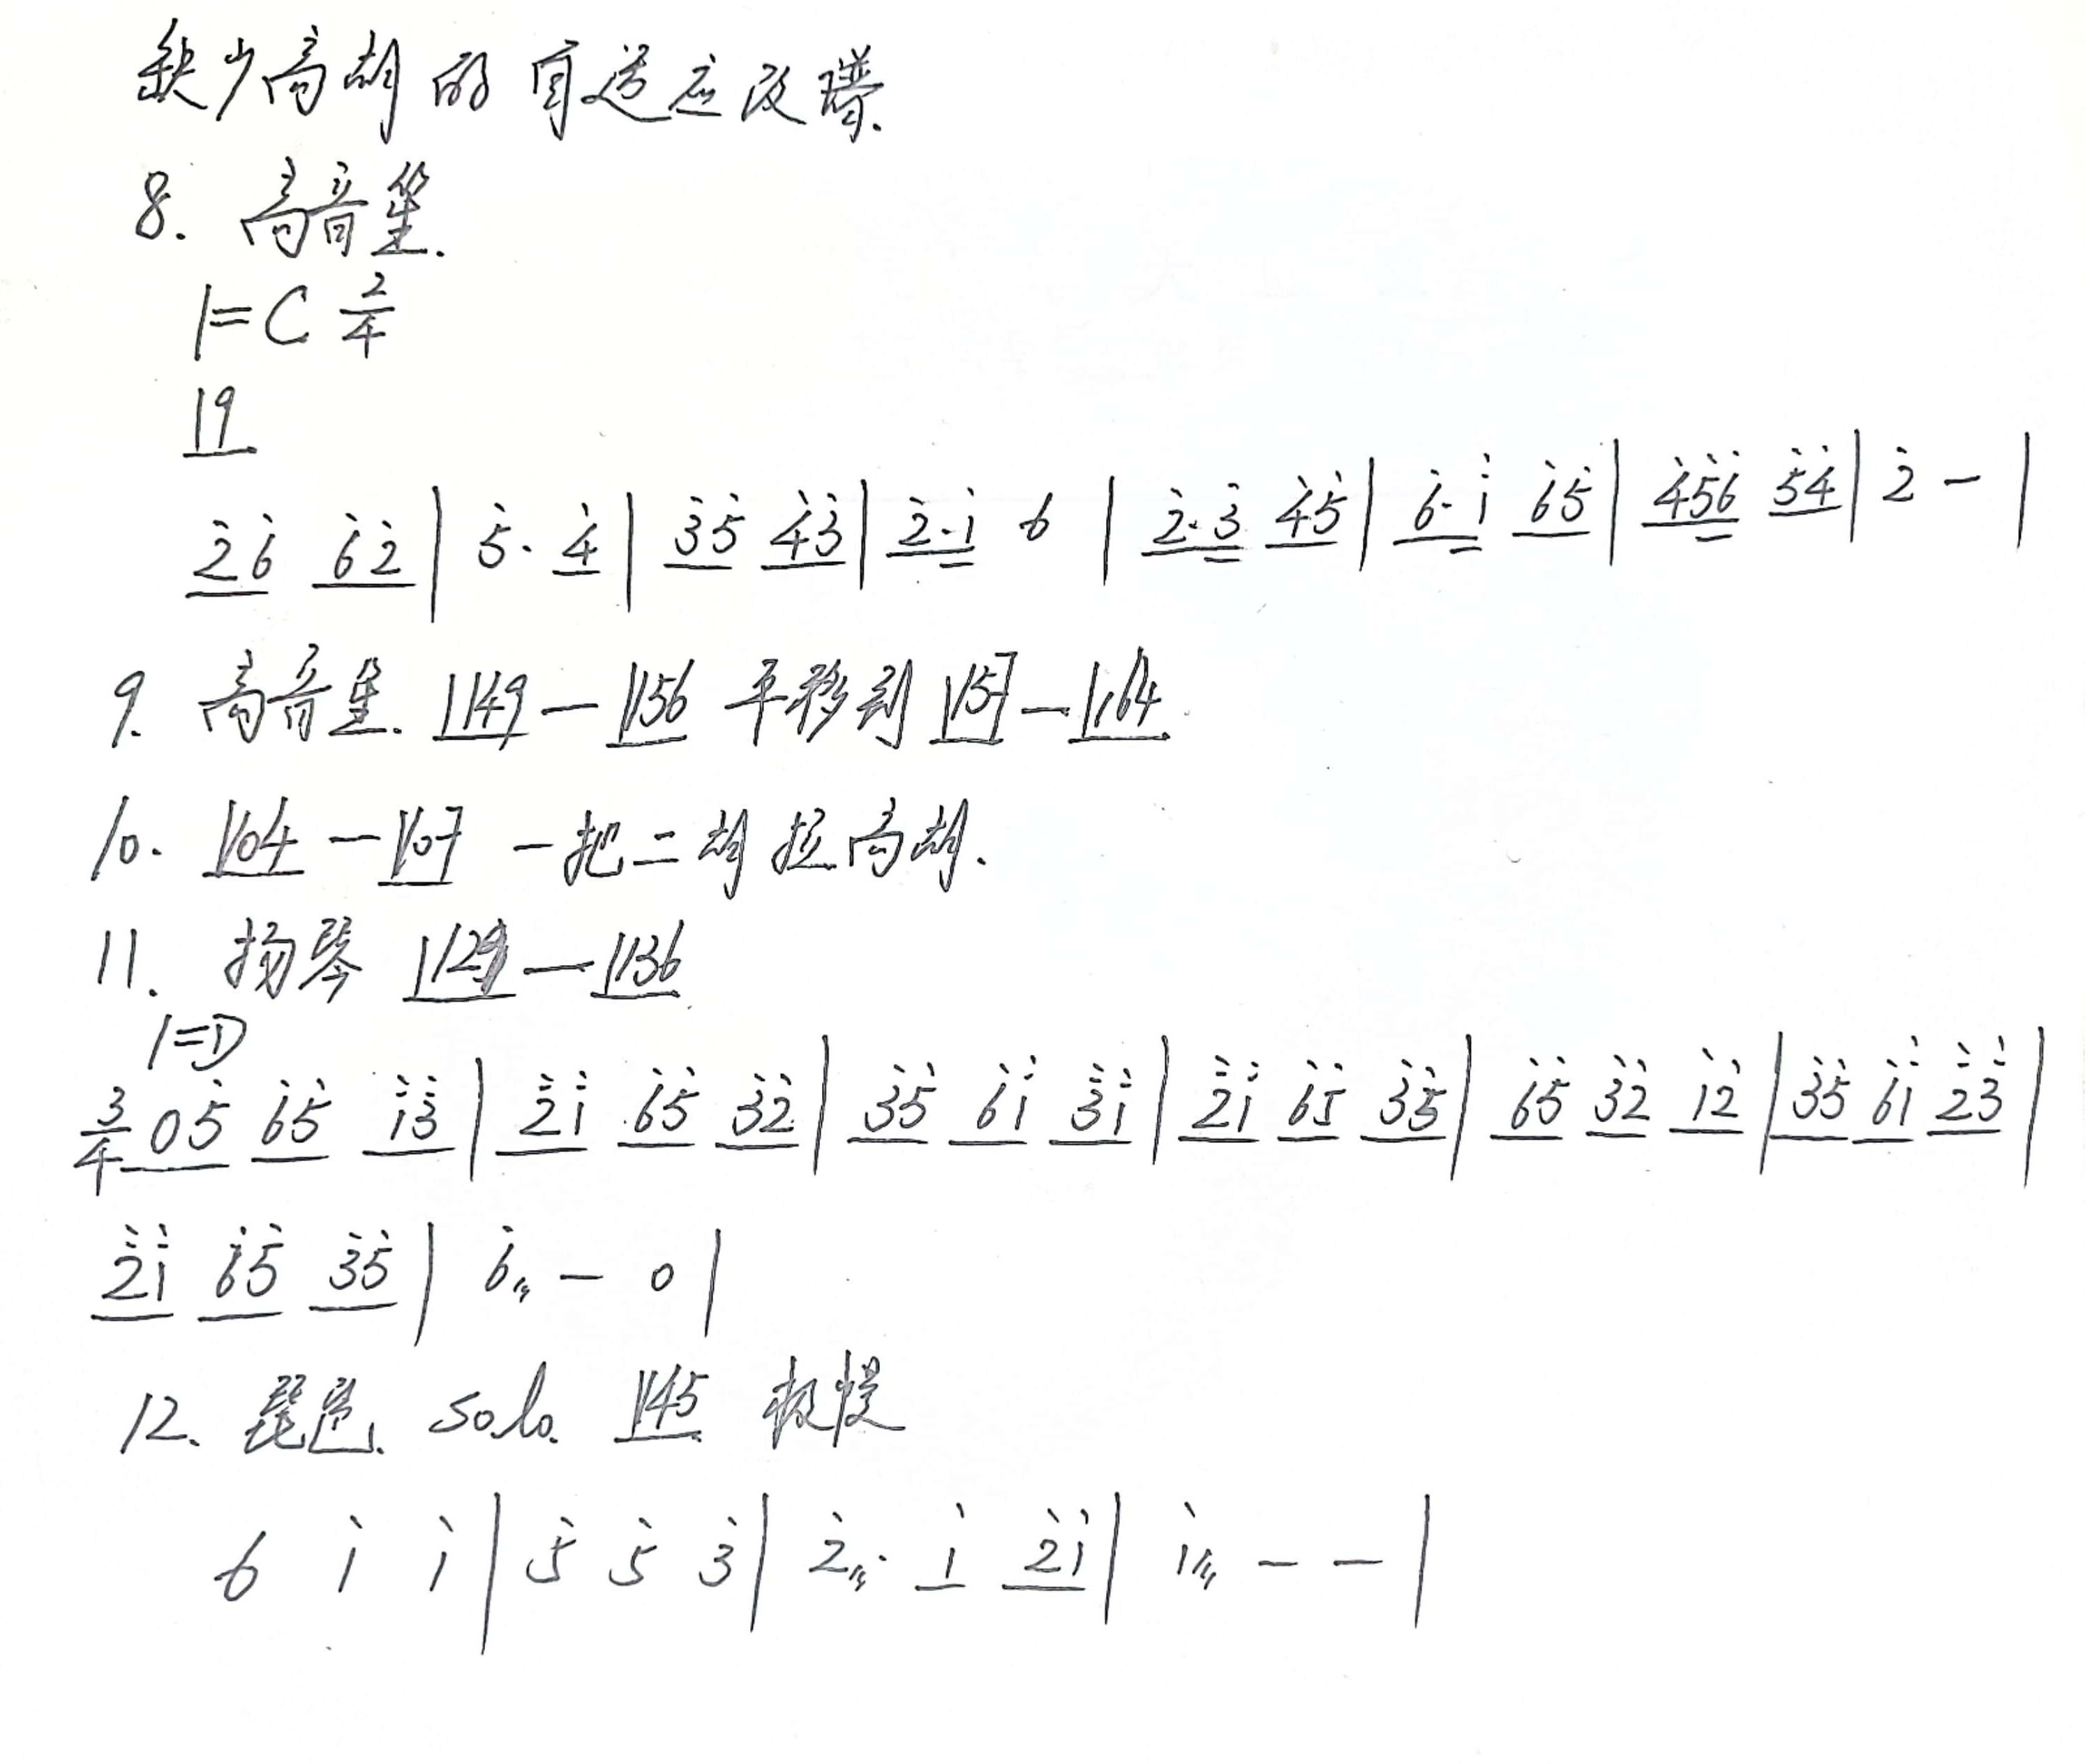 缺少高胡的自适应改谱.
8. 高音笙.
1=C 2/4
|19
2̇6̇ 6̇2̇ | 5̇. 4̇ | 3̇5̇ 4̇3̇ | 2̇.1̇ 6 | 2̇.3̇ 4̇5̇ | 6̇.i̇̇ 6̇5̇ | 4̇5̇6̇ 5̇4̇ | 2̇ - |
9. 高音笙. |149 — |156 平移到 |157 — |164.
10. |104 — |107 一把二胡拉高胡.
11. 扬琴 |129 — |136
1=D
3/4 05̇ 6̇5̇ 1̈3̈ | 2̈1̈ 6̇5̇ 3̇2̇ | 3̇5̇ 6̇1̈ 3̈1̈ | 2̈1̈ 6̇5̇ 3̇5̇ | 6̇5̇ 3̇2̇ 1̇2̇ | 3̇5̇ 6̇1̈ 2̈3̈ |
2̈1̈ 6̇5̇ 3̇5̇ | 6̇〃 - 0 |
12. 琵琶. solo. |145 极慢
6 1̇ 1̇ | 5̇ 5̇ 3̇ | 2̇〃. 1̇ 2̇1̇ | 1̇〃 - - |